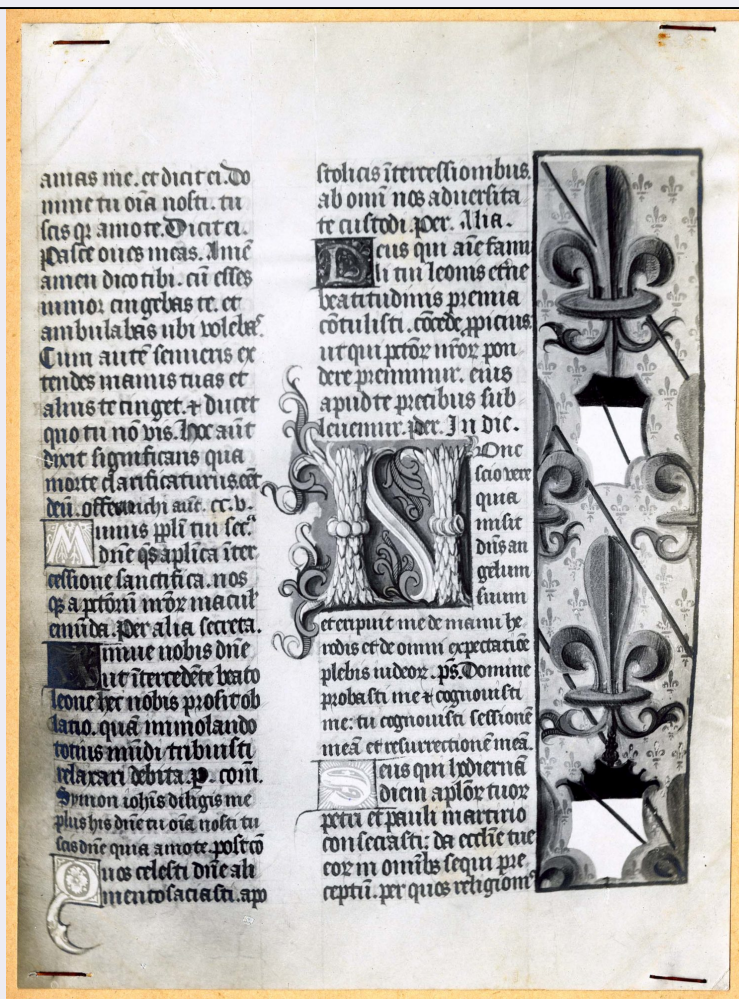 amas me. et dicit ei. Do
mine tu oīa nosti. tu
scis qꝛ amo te. Dicit ei.
Pasce oues meas. Amē
amen dico tibi. cū esses
iunior cingebas te. et
ambulabas ubi voleba
Cum autē senueris ex
tendes manus tuas et
alius te cinget. ⁊ ducet
quo tu nō vis. Hoc aūt
dixit significans qua
morte clarificaturus eēt
deū. michi aūt.
Munus ppli tui
dn̄e qs aplica īter
cessione sanctifica. nos
qꝫ a pctorū nrōꝝ macul
emūda. Per alia secreta.
Annue nobis dn̄e
ut ītercedēte beato
leone hec nobis profit ob
latio. quā immolando
totius mūdi tribuisti
relaxari debita. p. com̄.
Symon iohis diligis me
plus his dn̄e tu oīa nosti tu
scis dn̄e quia amo te. postcō
Quos celesti dn̄e ali
mento saciasti. apo
stolicis ītercessionibus
ab omni nos aduersita
te custodi. Per. Alia.
Deus qui aīe famu
li tui leonis etne
beatitudinis premia
cōtulisti. cōcede ꝓpicius
ut qui pctōꝝ nrōꝝ pon
dere premimur. eius
apud te precibus sub
leuemur. per. In die.
Nunc
scio vere
quia
misit
dn̄s an
gelum
suum
et eripuit me de manu he
rodis et de omni expectatiōe
plebis iudeoꝝ. ps. Domine
probasti me ⁊ cognouisti
me: tu cognouisti sessionē
meā et resurrectionē meā.
Deus qui hodiernā
diem aplōꝝ tuoꝝ
petri et pauli martirio
consecrasti: da eccl̄ie tue
eoꝝ in omībꝫ sequi pre
ceptū. per quos religionis